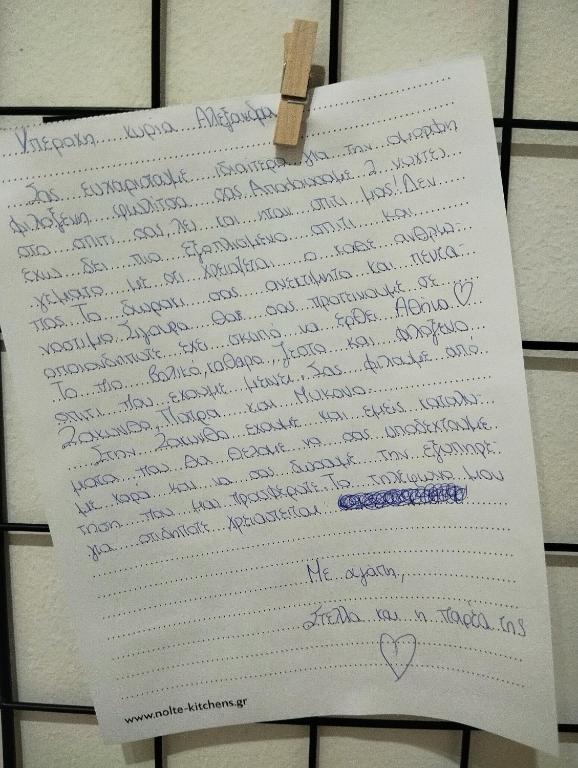 Υπέροχη κυρία Αλεξάνδρα
Σας ευχαριστούμε ιδιαίτερα για την όμορφη
φιλόξενη φωλίτσα σας. Απολαύσαμε 2 νύχτες
στο σπίτι σας, λες και ήταν σπίτι μας! Δεν
έχω δει πιο εξοπλισμένο σπίτι και
γεμάτο με ότι χρειάζεται ο κάθε άνθρω-
πος. Το δωράκι σας ανεκτίμητο και πεντα-
νόστιμο. Σίγουρα θα σας προτείνουμε σε
οποιονδήποτε έχει σκοπό να έρθει Αθήνα
Το πιο βολικό, καθαρό, ζεστό και φιλόξενο
σπίτι που έχουμε μείνει. Σας φιλάμε από
Ζάκυνθο, Πάτρα και Μύκονο.
Στην Ζάκυνθο έχουμε και εμείς καταλύ-
ματα που θα θέλαμε να σας υποδεχτούμε
με χαρά και να σας δώσουμε την εξυπηρέ-
τηση που μας προσφέρατε. Το τηλέφωνό μου
για οτιδήποτε χρειαστείτε
Με αγάπη,
Στέλλα και η παρέα της
www.nolte-kitchens.gr